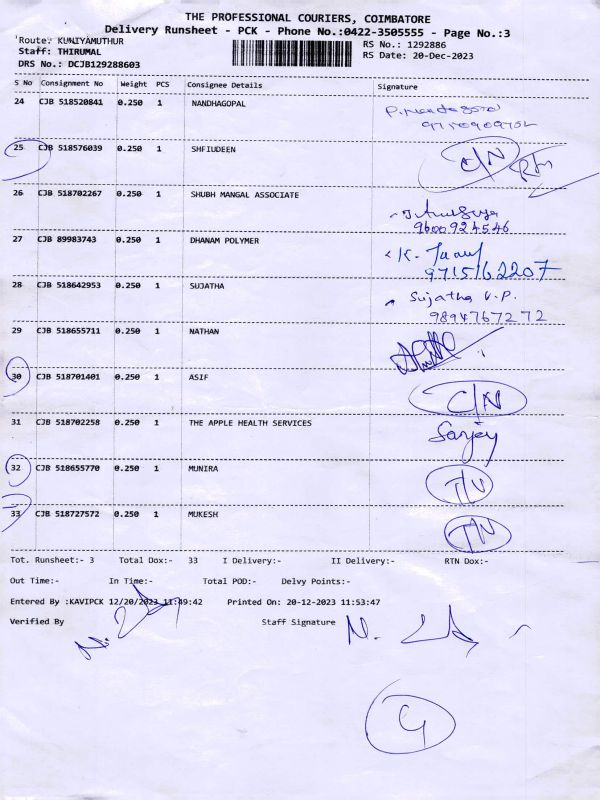 THE PROFESSIONAL COURIERS, COIMBATORE
Delivery Runsheet - PCK - Phone No.:0422-3505555 - Page No.:3
Route: KUNIYAMUTHUR
RS No.: 1292886
Staff: THIRUMAL
RS Date: 20-Dec-2023
DRS No.: DCJB129288603
S No Consignment No Weight PCS Consignee Details Signature
24 CJB 518520841 0.250 1 NANDHAGOPAL
25 CJB 518576039 0.250 1 SHFIUDEEN C/N
26 CJB 518702267 0.250 1 SHUBH MANGAL ASSOCIATE
9600924546
27 CJB 89983743 0.250 1 DHANAM POLYMER K.
9715162207
28 CJB 518642953 0.250 1 SUJATHA Sujatha V.P.
9894767272
29 CJB 518655711 0.250 1 NATHAN
30 CJB 518701401 0.250 1 ASIF C/N
31 CJB 518702258 0.250 1 THE APPLE HEALTH SERVICES Sanjay
32 CJB 518655770 0.250 1 MUNIRA
33 CJB 518727572 0.250 1 MUKESH
Tot. Runsheet:- 3 Total Dox:- 33 I Delivery:- II Delivery:- RTN Dox:-
Out Time:- In Time:- Total POD:- Delvy Points:-
Entered By :KAVIPCK 12/20/2023 11:49:42 Printed On: 20-12-2023 11:53:47
Verified By Staff Signature N.